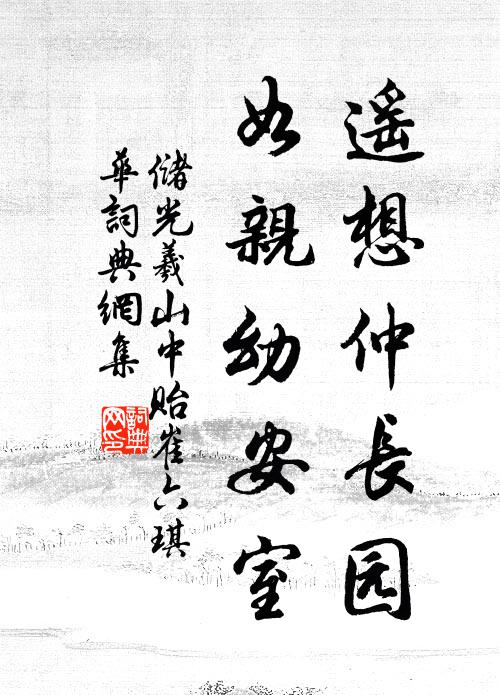 遥想仲長园
如親幼安室
儲光羲山中貽崔六琪
華詞典網集
詞典
网印